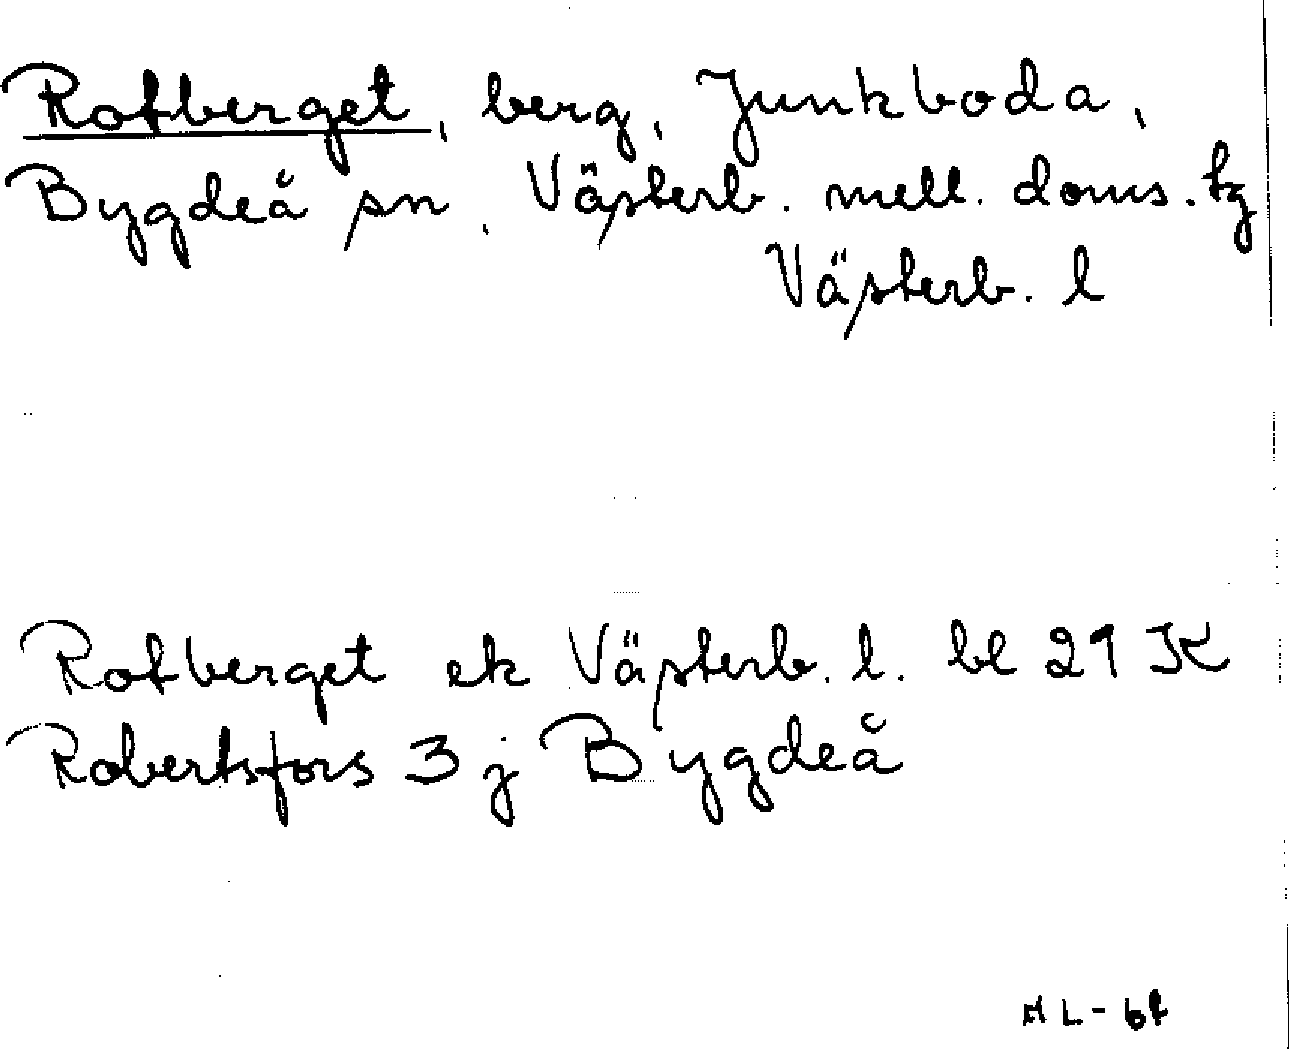 Rotberget, berg, Junkboda,
Bygdeå sn, Västerb. mell. doms. tg
Västerb. l
Rotberget ek Västerb. l. bl 29 JK
Robertsfors 3 j Bygdeå